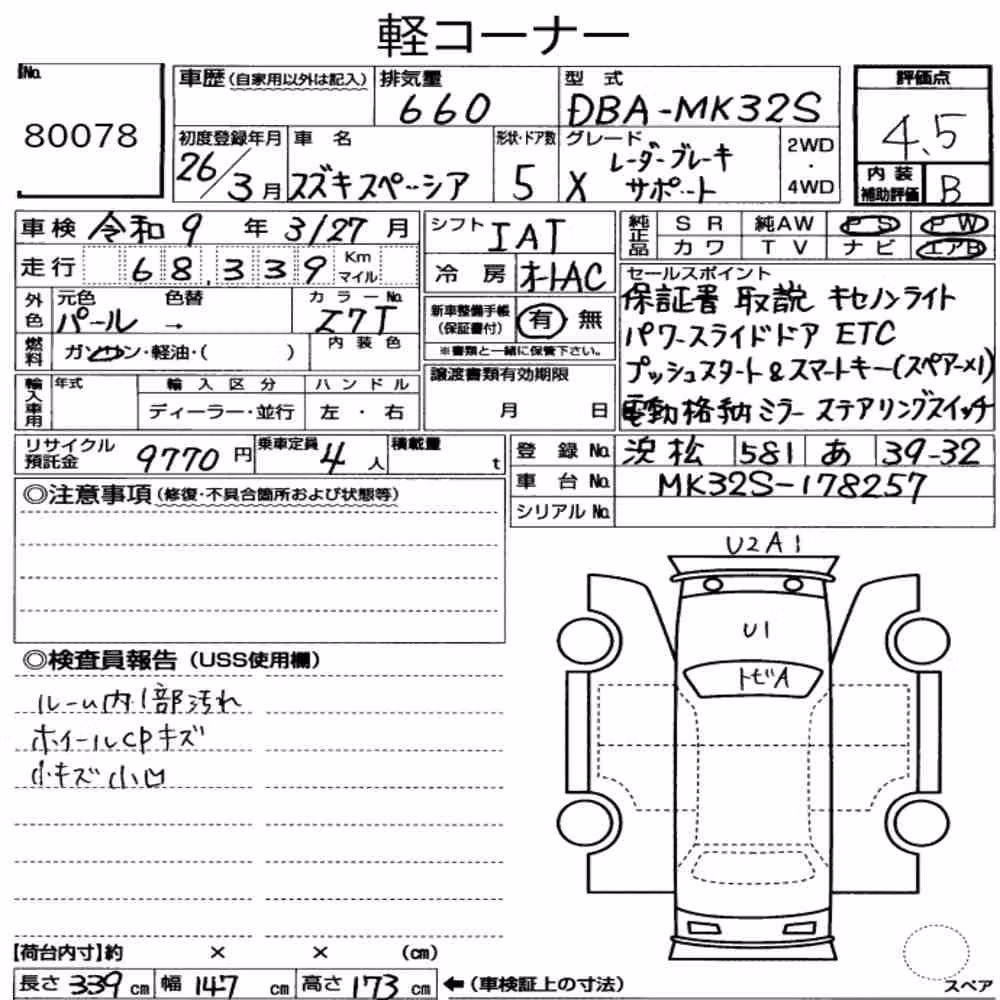 軽コーナー
No.
80078
車歴(自家用以外は記入)
排気量
660
型式
DBA-MK32S
評価点
4.5
初度登録年月
26/3月
車名
スズキスペーシア
形状・ドア数
5
グレード
X レーダーブレーキ
サポート
2WD
・
4WD
内装
補助評価
B
車検 令和9年3/27月
走行 68,339 Km
マイル
外色 元色 色替 カラーNo.
パール → Z7T
燃料 ガソリン・軽油・( )
内装色
輸入車用 年式 輸入区分 ハンドル
ディーラー・並行 左・右
シフト IAT
冷房 オートAC
新車整備手帳
(保証書付)
有 無
※書類と一緒に保管下さい。
譲渡書類有効期限
月 日
純正品 SR 純AW PS PW
カワ TV ナビ エアB
セールスポイント
保証書 取説 キセノンライト
パワースライドドア ETC
プッシュスタート&スマートキー(スペアー×1)
電動格納ミラー ステアリングスイッチ
リサイクル
預託金
9770円
乗車定員
4人
積載量
t
登録No. 浜松 581 あ 39-32
車台No. MK32S-178257
シリアルNo.
◎注意事項(修復・不具合箇所および状態等)
◎検査員報告(USS使用欄)
ルーム内1部汚れ
ホイールCPキズ
小キズ小凹
U2 A1
U1
トビA
【荷台内寸】約 × × (cm)
長さ 339 cm 幅 147 cm 高さ 173 cm ←(車検証上の寸法)
スペア